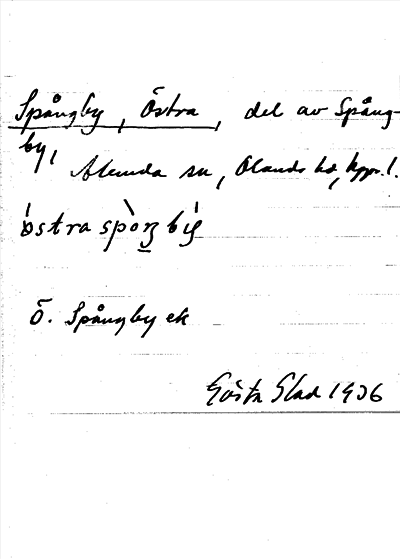 Spångby, Östra, del av Spång-
by,
Alunda sn, Olands hd, Upps. l.
östra spòŋ bý
Ö. Spångby ek
Gösta Glad 1936